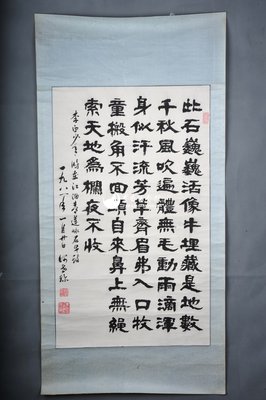 此石巍巍活像牛埋藏是地數
千秋風吹遍體無毛動雨滴渾
身似汗流芳草齊眉弗入口牧
童搬角不回頭自來鼻上無繩
索天地為欄夜不收
李白少年時游
一九八一年一月廿日